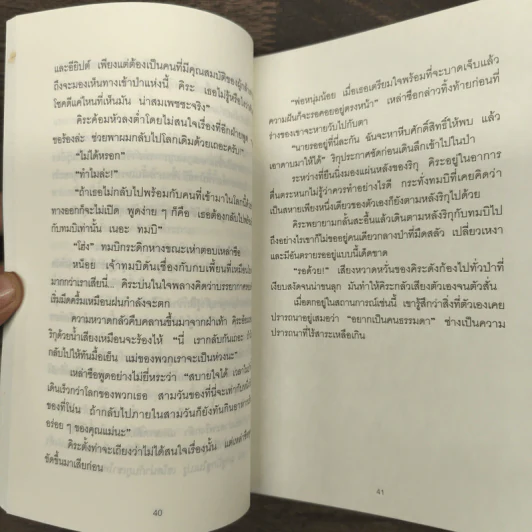 และอียิปต์ เพียงแต่ต้องเป็นคนที่มีคุณสมบัติของผู้กล้า
ถึงจะมองเห็นทางเข้าป่าแห่งนี้ คิระ เธอไม่รู้หรือไงว่า
โชคดีแค่ไหนที่เห็นมัน น่าสมเพชซะจริง"
คิระค้อมหัวลงต่ำโดยไม่สนใจเรื่องที่อีกฝ่ายพูด
ขอร้องล่ะ ช่วยพาผมกลับไปโลกเดิมด้วยเถอะครับ!"
"ไม่ได้หรอก"
"ทำไมล่ะ!"
"ถ้าเธอไม่กลับไปพร้อมกับคนที่เข้ามาในโลกนี้ด้วย
ทางออกก็จะไม่เปิด พูดง่าย ๆ ก็คือ เธอต้องกลับ
กับทมปิเท่านั้น เนอะ ทมปิ"
"โฮ่ง" ทมปิกระดิกหางขณะเห่าตอบเหล่าซือ
หน็อย เจ้าทมปิดันเชื่องกับกบเพี้ยนที่เหมือน
มากกว่าเราเสียนี่ คิระบ่นในใจพลางคิดว่าบรรยากาศ
เริ่มมืดครึ้มเหมือนฝนกำลังจะตก
ความหวาดกลัวคืบคลานขึ้นมาจากฝ่าเท้า คิระ
ริกุด้วยน้ำเสียงเหมือนจะร้องไห้ "นี่ เรากลับกันเถอะ
กลับไปให้ทันมื้อเย็น แม่ของพวกเราจะเป็นห่วงนะ"
เหล่าซือพูดอย่างไม่ยี่หระว่า "สบายใจได้ เวลาใน
เดินเร็วกว่าโลกของพวกเธอ สามวันของที่นี่จะเท่ากับ
ของที่โน่น ถ้ากลับไปภายในสามวันก็ยังทันกินอาหาร
อร่อย ๆ ของคุณแม่นะ"
คิระตั้งท่าจะเถียงว่าไม่ได้สนใจเรื่องนั้น แต่
ขัดขึ้นมาเสียก่อน
40
"พ่อหนุ่มน้อย เมื่อเธอเตรียมใจพร้อมที่จะบาดเจ็บแล้ว
ความฝันก็จะรอคอยอยู่ตรงหน้า" เหล่าซือกล่าวทิ้งท้ายก่อนที่
ร่างของเขาจะหายวับไปกับตา
"นายรออยู่ที่นี่ละกัน ฉันจะหาหีบศักดิ์สิทธิ์ให้พบ แล้ว
เอาดาบมาให้ได้" ริกุประกาศชัดก่อนเดินลึกเข้าไปในป่า
ระหว่างที่ยืนนิ่งมองแผ่นหลังของริกุ คิระอยู่ในอาการ
ตื่นตระหนกไม่รู้ว่าควรทำอย่างไรดี กระทั่งทมปิที่เคยคิดว่า
เป็นสหายเพียงหนึ่งเดียวของตัวเองก็ยังตามหลังริกุไปด้วย
คิระพยายามกลั้นสะอื้นแล้วเดินตามหลังริกุกับทมปิไป
ถึงอย่างไรเขาก็ไม่ขออยู่คนเดียวกลางป่าที่มืดสลัว เปลี่ยวเหงา
และมีอันตรายรออยู่แบบนี้เด็ดขาด
"รอด้วย!" เสียงหวาดหวั่นของคิระดังก้องไปทั่วป่าที่
เงียบสงัดจนน่าขนลุก มันทำให้คิระกลัวเสียงตัวเองจนตัวสั่น
เมื่อตกอยู่ในสถานการณ์เช่นนี้ เขารู้สึกว่าสิ่งที่ตัวเองเคย
ปรารถนาอยู่เสมอว่า "อยากเป็นคนธรรมดา" ช่างเป็นความ
ปรารถนาที่ไร้สาระเหลือเกิน
41